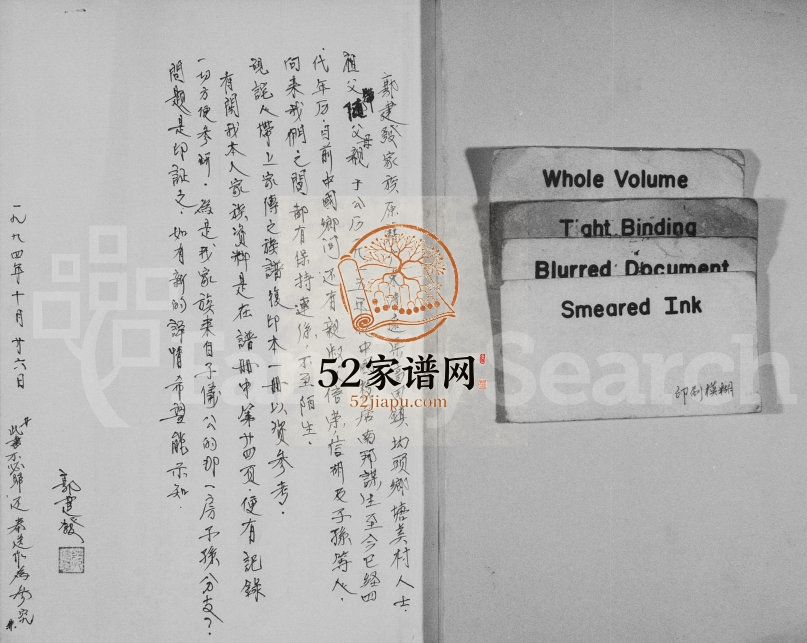 郭建發家族原
鎮坳頭鄉塘美村人士.
祖父隨父母親于公历
居南邦謀生至今已経四
代年历.目前中國鄉间还有親
信胡女子孫等人.
向来我們之間都有保持連絡,不至陌生.
現託人帶上家傳之族譜復印本一冊以資參考.
有関我本人家族資料是在譜冊中第廿四頁.便有記錄
一切方便參研.為是我家族來自子儀公的那一房子孫分支?
問題是印証之.如有新的詳情希望能示知.
郭建發
一九九四年十月廿六日
此書不必歸還奉送作為參究
Whole Volume
Tight Binding
Blurred Document
Smeared Ink
印刷模糊
52家谱网
52jiapu.com
FamilySearch